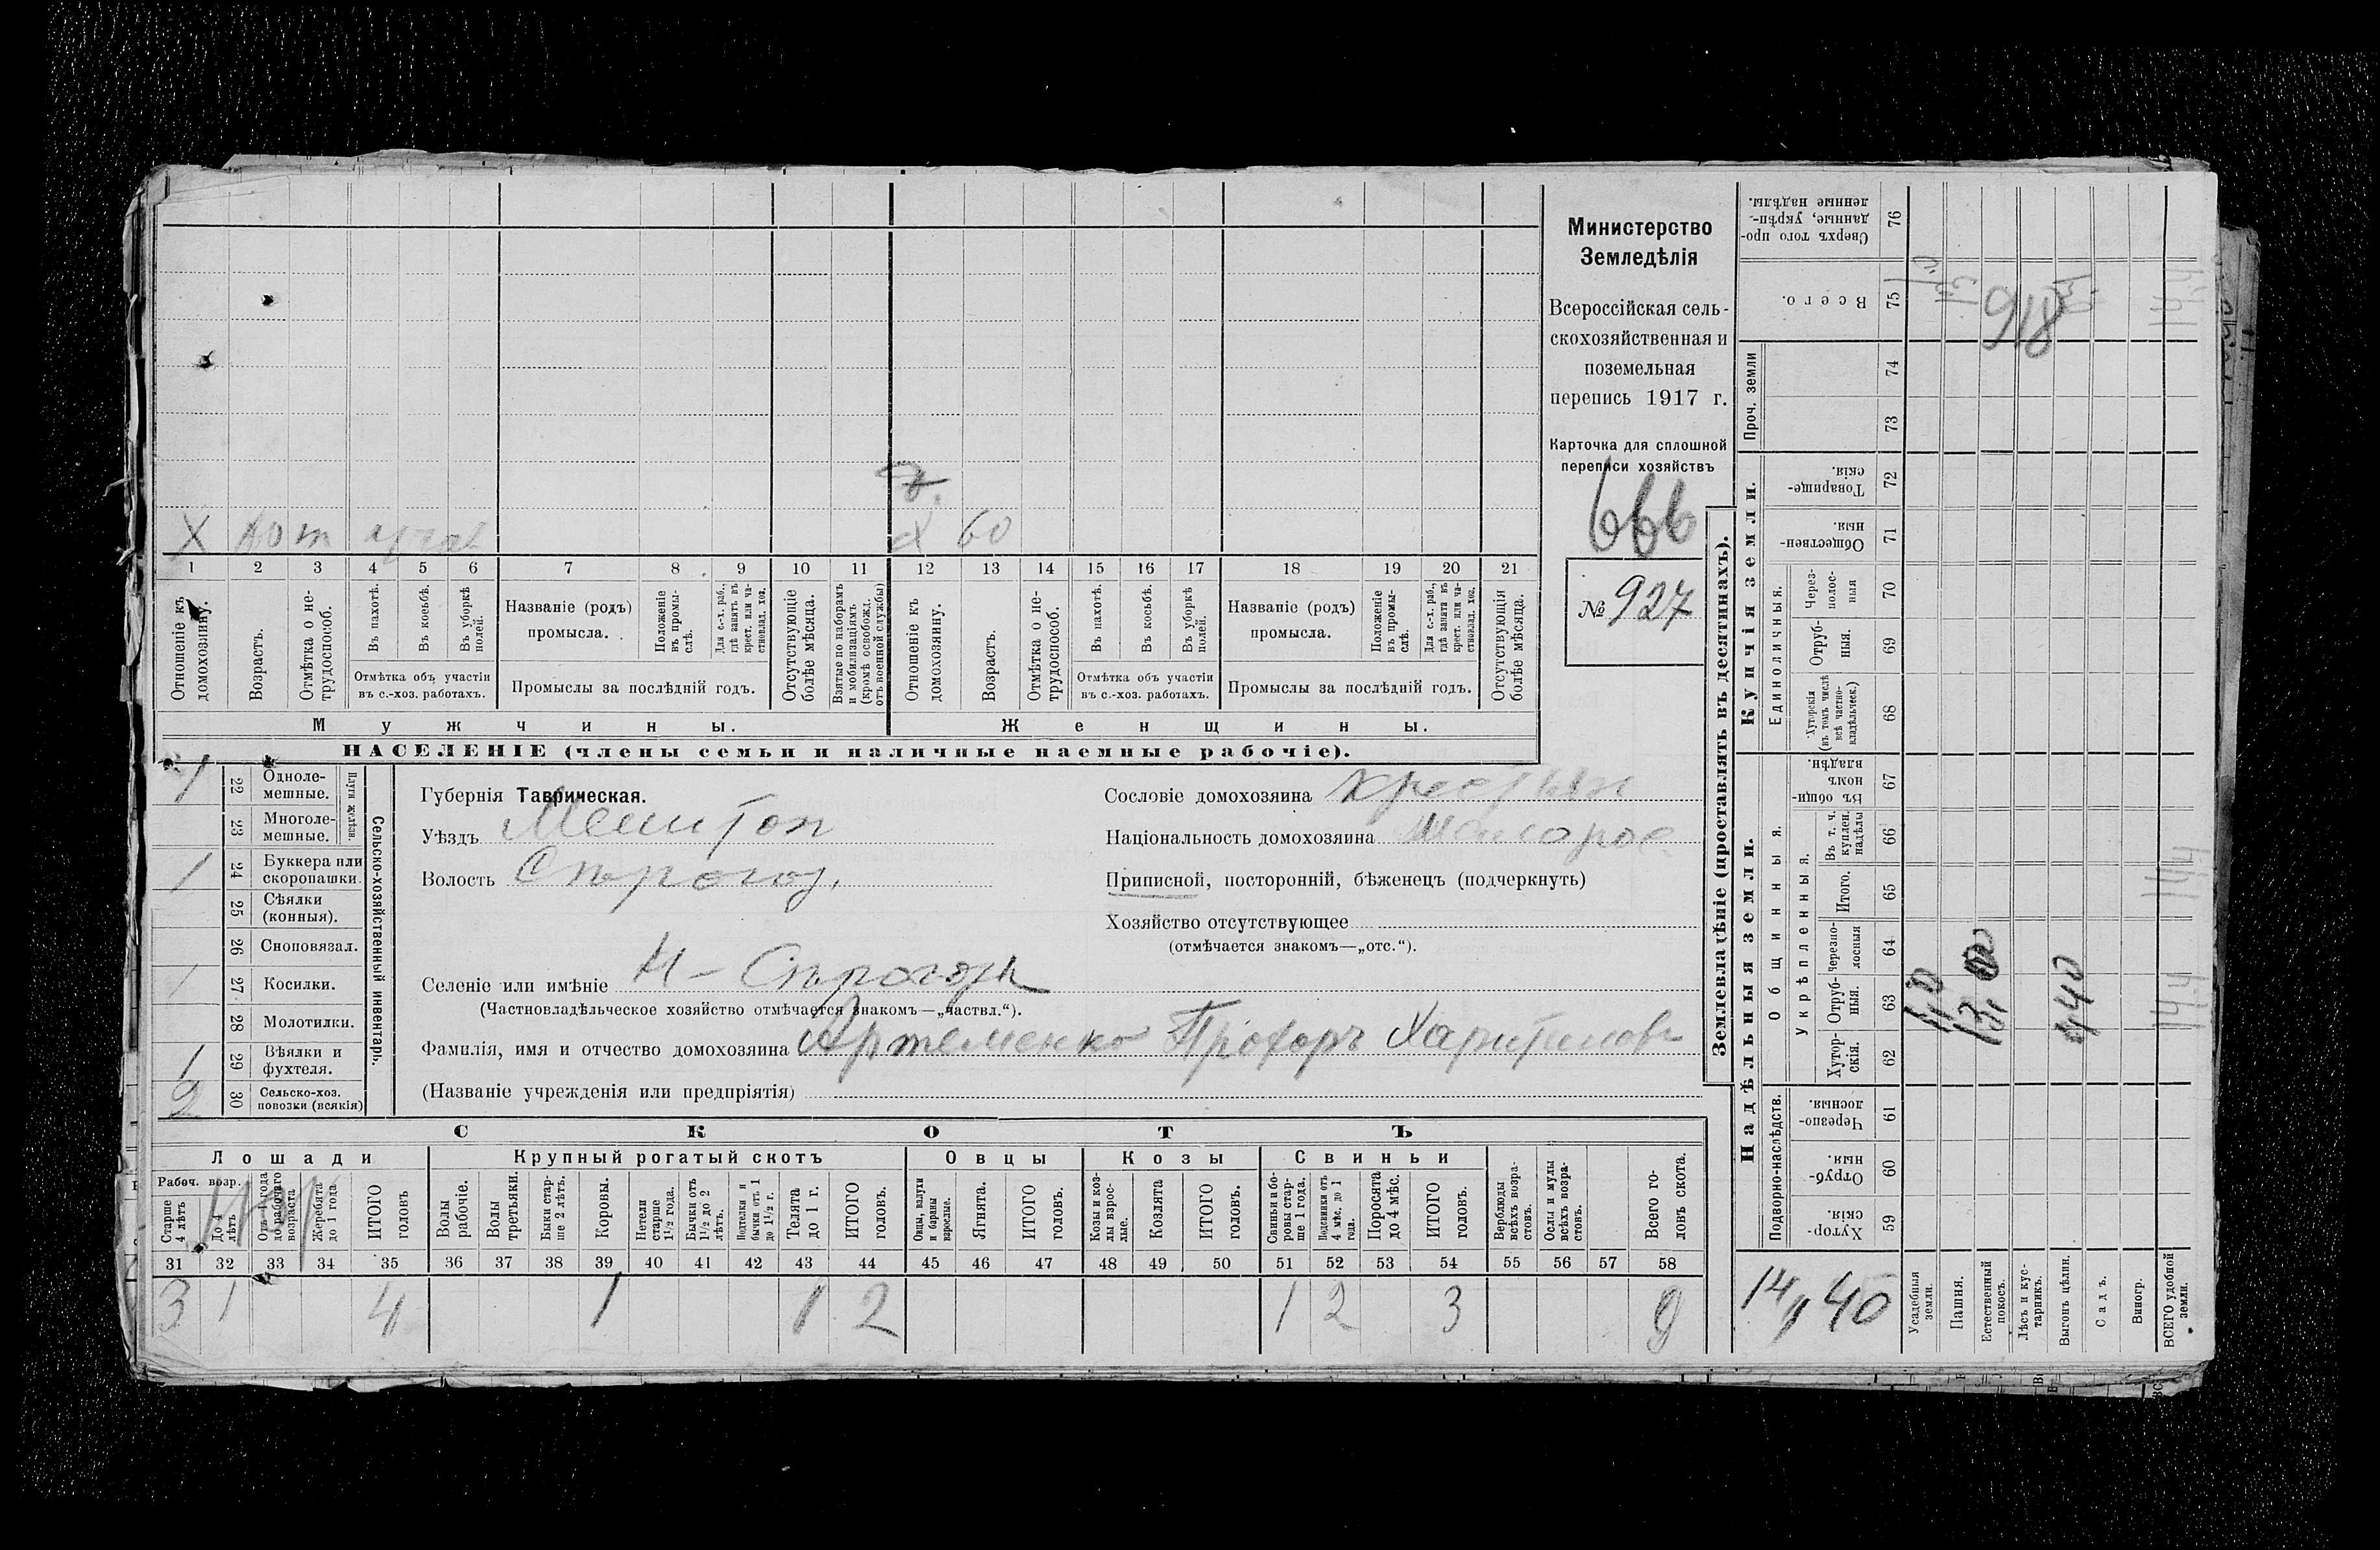 Министерство
Земледѣлія
Всероссійская сель-
скохозяйственная и
поземельная
перепись 1917 г.
Карточка для сплошной
переписи хозяйствъ
666
№ 927
X
60
1 2 3 4 5 6 7 8 9 10 11 12 13 14 15 16 17 18 19 20 21
Отношеніе къ домохозяину.
Возрастъ.
Отмѣтка о не-трудоспособ.
Въ пахотѣ.
Въ косьбѣ.
Въ уборкѣ полей.
Отмѣтка объ участіи
въ с.-хоз. работахъ.
Названіе (родъ)
промысла.
Положеніе въ промы-слѣ.
Для с.-х. раб., гдѣ занятъ въ крест. или ча-стновлад. хоз.
Промыслы за послѣдній годъ.
Отсутствующіе болѣе мѣсяца.
Взятые по наборамъ и мобилизаціямъ (кромѣ освобожд. отъ военной службы)
Отношеніе къ домохозяину.
Возрастъ.
Отмѣтка о не-трудоспособ.
Въ пахотѣ.
Въ косьбѣ.
Въ уборкѣ полей.
Отмѣтка объ участіи
въ с.-хоз. работахъ.
Названіе (родъ)
промысла.
Положеніе въ промы-слѣ.
Для с.-х. раб., гдѣ занята въ крест. или ча-стновлад. хоз.
Промыслы за послѣдній годъ.
Отсутствующія болѣе мѣсяца.
Мужчины.
Женщины.
НАСЕЛЕНІЕ (члены семьи и наличные наемные рабочіе).
Сельско-хозяйственный инвентарь.
1 22 Одноле-мешные.
23 Многоле-мешные.
1 24 Буккера или скоропашки.
25 Сѣялки (конныя).
26 Сноповязал.
1 27 Косилки.
28 Молотилки.
1 29 Вѣялки и фухтеля.
2 30 Сельско-хоз. повозки (всякія)
Губернія Таврическая.
Уѣздъ Мелитоп
Волость
Селеніе или имѣніе
(Частновладѣльческое хозяйство отмѣчается знакомъ—„частвл.“).
Фамилія, имя и отчество домохозяина Артеменко Прохоръ Харитоновъ
(Названіе учрежденія или предпріятія)
Сословіе домохозяина крестьян
Національность домохозяина Малорос.
Приписной, посторонній, бѣженецъ (подчеркнуть)
Хозяйство отсутствующее
(отмѣчается знакомъ—„отс.“).
СКОТЪ
Лошади
Крупный рогатый скотъ
Овцы
Козы
Свиньи
Рабоч. возр.
Старше 4 лѣтъ
До 4 лѣтъ.
Отъ 1 года до рабочаго возраста
Жеребята до 1 года.
ИТОГО головъ
Волы рабочіе.
Волы третьяки.
Быки стар-ше 2 лѣтъ.
Коровы.
Нетели старше 1½ года.
Бычки отъ 1½ до 2 лѣтъ.
Подтелки и бычки отъ 1 до 1½ г.
Телята до 1 г.
ИТОГО головъ.
Овцы, валухи и бараны взрослые.
Ягнята.
ИТОГО головъ.
Козы и коз-лы взрос-лые.
Козлята
ИТОГО головъ.
Свиньи и бо-ровы стар-ше 1 года.
Подсвинки отъ 4 мѣс. до 1 года.
Поросята до 4 мѣс.
ИТОГО головъ.
Верблюды всѣхъ возра-стовъ.
Ослы и мулы всѣхъ возра-стовъ.
Всего го-ловъ скота.
31 32 33 34 35 36 37 38 39 40 41 42 43 44 45 46 47 48 49 50 51 52 53 54 55 56 57 58
3 1 4 1 1 2 1 2 3 9
Землевладѣніе (проставлять въ десятинахъ).
Купчія земли.
Надѣльныя земли.
Сверхъ того про-данные, укрѣп-ленные надѣлы. 76
Всего. 75
Проч. земли
74
73
Товарище-скія. 72
Обществен-ныя. 71
Единоличныя.
Через-полос-ныя 70
Отруб-ныя. 69
Хуторскія (въ томъ числѣ всѣ частно-владѣльческ.) 68
Общинныя.
Въ общи-номъ владѣн. 67
Укрѣпленныя.
Въ т. ч. куплен. надѣлы 66
Итого. 65
Черезпо-лосныя 64
Отруб-ныя. 63
Хутор-скія. 62
Подворно-наслѣдств.
Черезпо-лосныя. 61
Отруб-ныя. 60
Хутор-скія. 59
918
14,40
Усадебныя земли.
Пашня.
Естественный покосъ.
Лѣсъ и кус-тарникъ.
Выгонъ цѣлин.
Садъ.
Виногр.
ВСЕГО удобной земли.